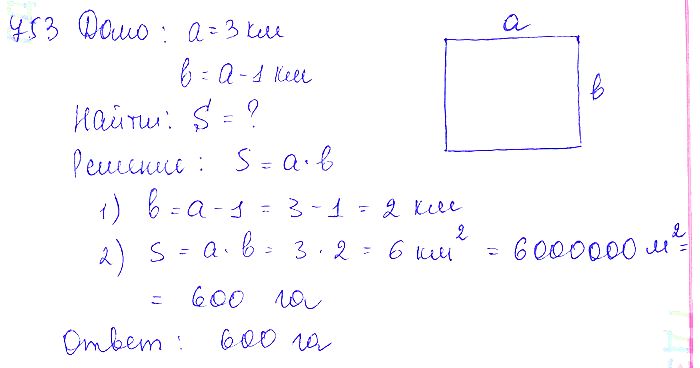 753 Дано: a = 3 км
b = a - 1 км
Найти: S = ?
Решение: S = a · b
1) b = a - 1 = 3 - 1 = 2 км
2) S = a · b = 3 · 2 = 6 км² = 6000000 м² =
= 600 га
Ответ: 600 га
a
b